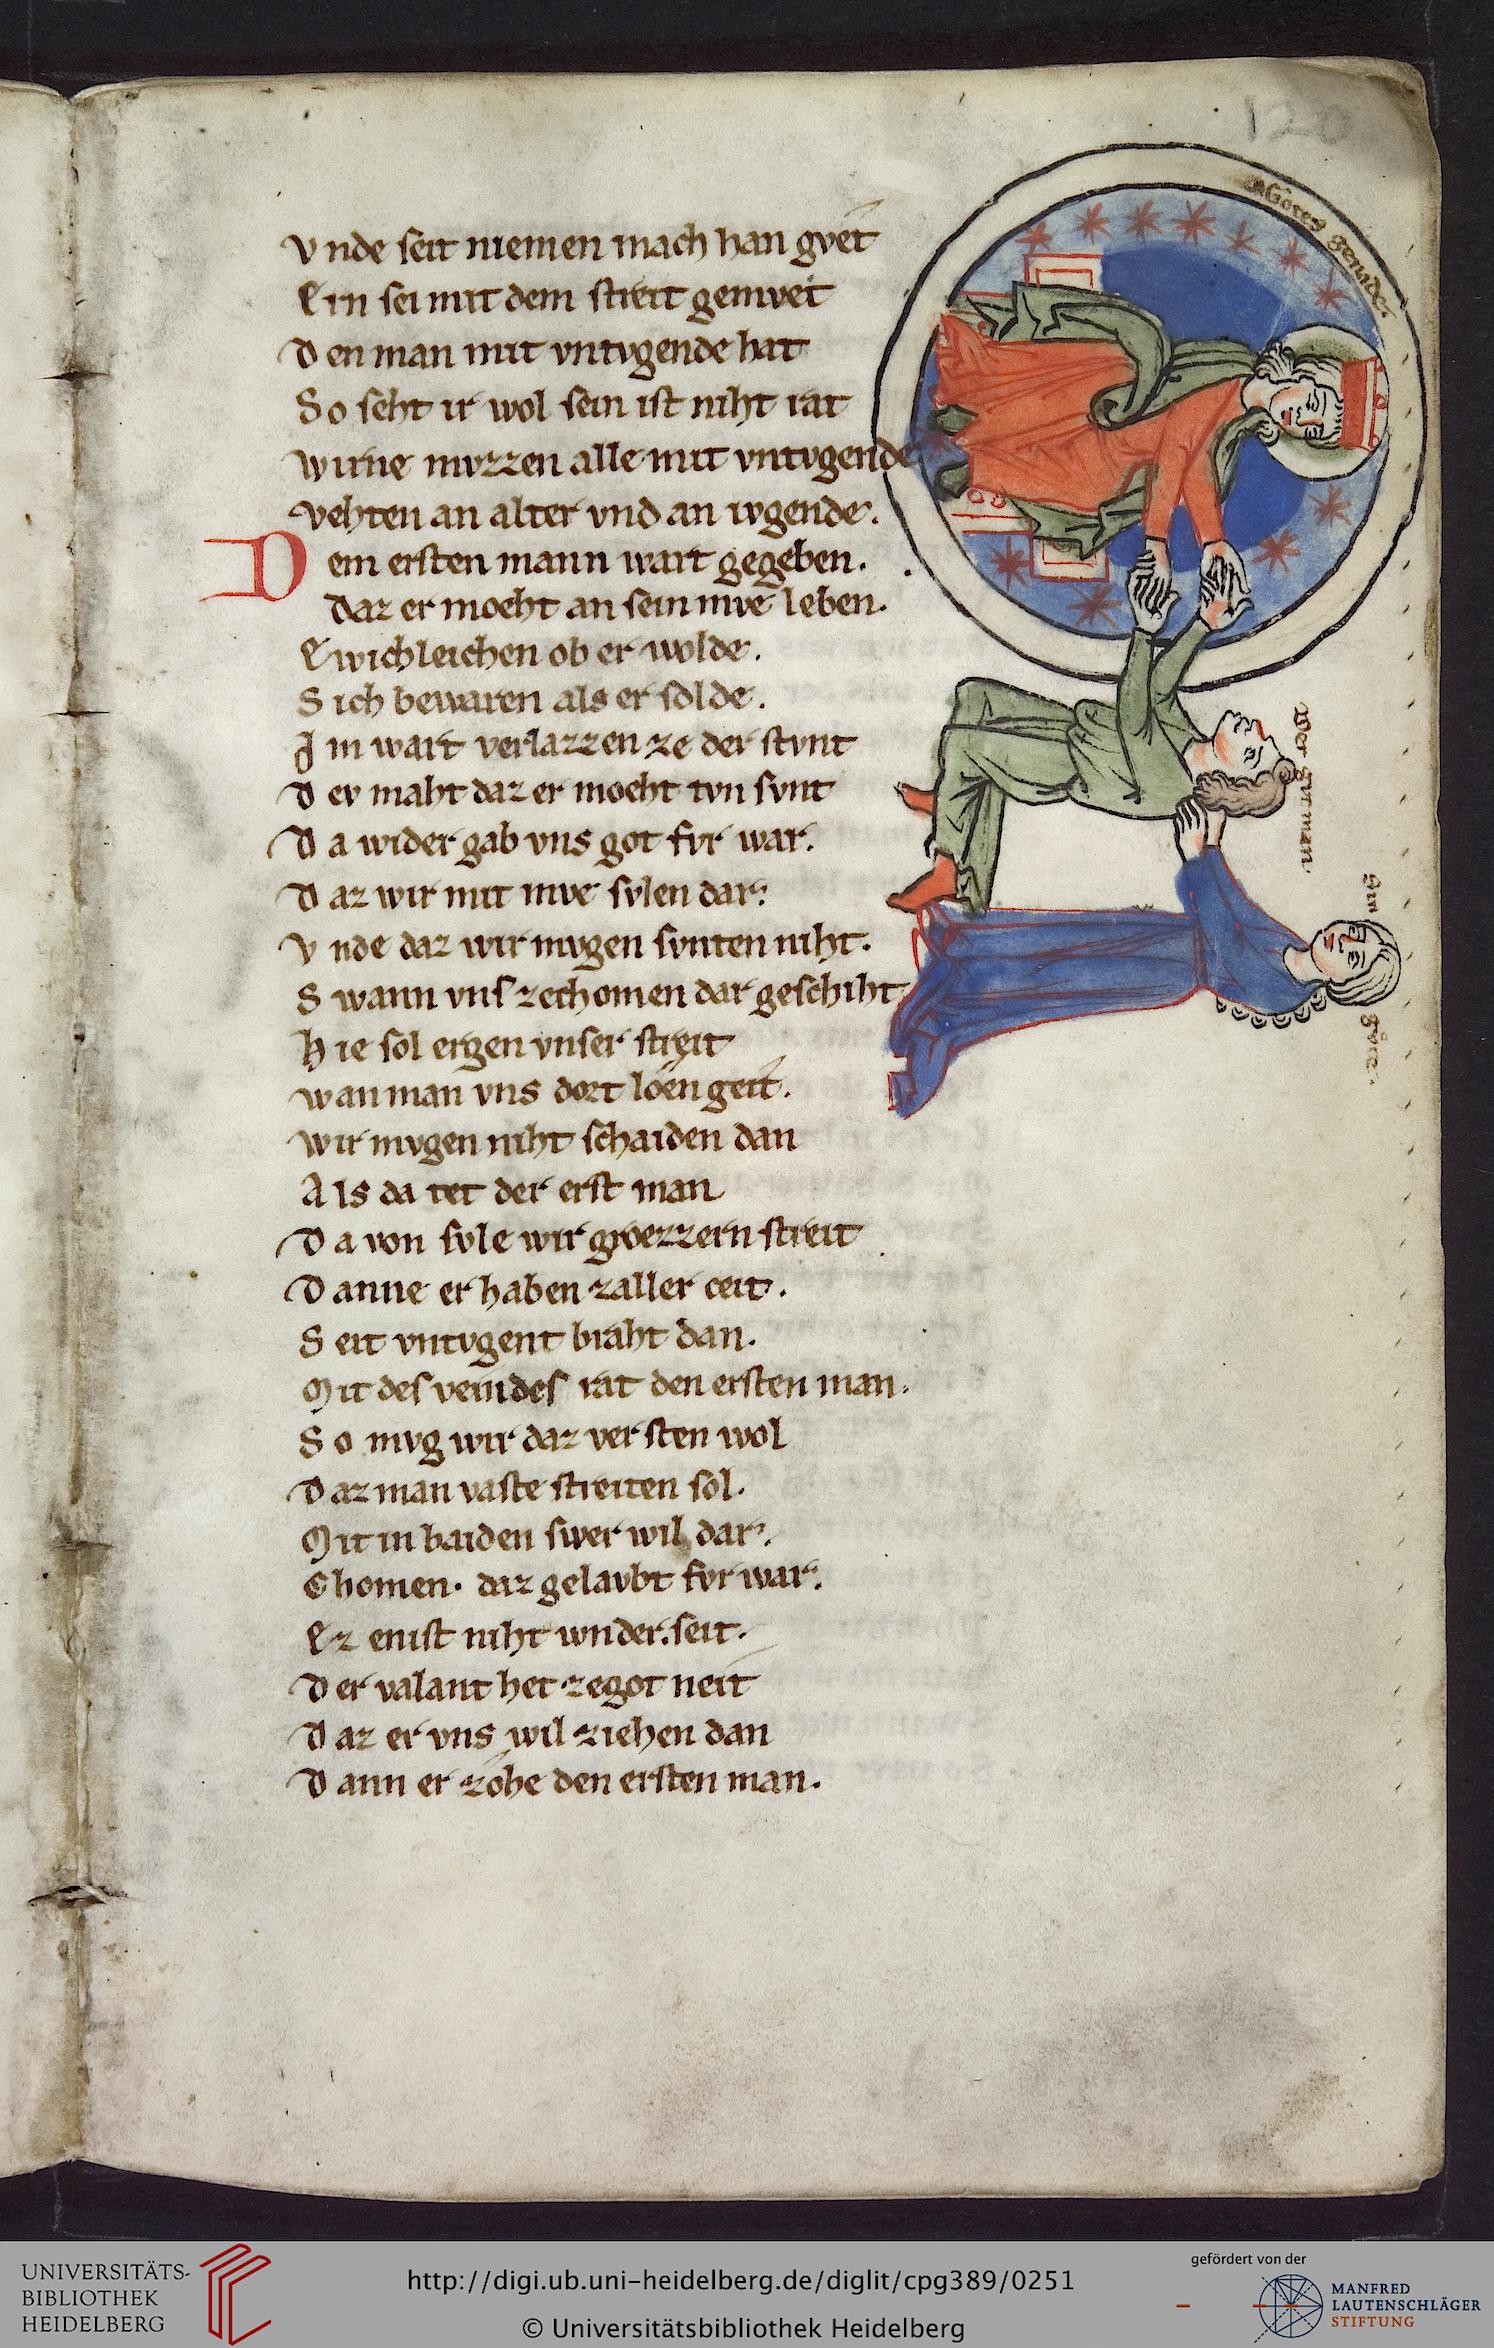 120
Vnde seit niemen mach han gvet
Ein sei mit dem streit gemvet
Den man mit vntvgende hat
So seht ir wol sein ist niht rat
wirne mvzzen alle mit vntvgende
vehten an alter vnd an ivgende.
Dem ersten mann wart gegeben.
daz er moeht an sein mve leben.
Ewichleichen ob er wolde.
Sich bewaren als er solde.
Im wart verlazzen ze der stvnt
Dev maht daz er moeht tvn svnt
Da wider gab vns got fvr war.
Daz wir mit mve svlen dar.
Vnde daz wir mvgen svnten niht.
Swann vns zechomen dar geschiht
Hie sol ergen vnser streit
wan man vns dort loen geit.
wir mvgen niht schaiden dan
Als da tet der erst man
Da von svle wir groezzern streit
Danne er haben zaller ceit.
Seit vntvgent braht dan.
Mit des veindes rat den ersten man.
So mvg wir daz versten wol
Daz man vaste streiten sol.
Mit in baiden swer wil dar.
Chomen. daz gelavbt fvr war.
Ez enist niht wnder. seit.
Der valant het ze got neit
Daz er vns wil ziehen dan
Dann er zohe den ersten man.
Gotes genade
Der gvt man
Sin gvete.
UNIVERSITÄTS-
BIBLIOTHEK
HEIDELBERG
http://digi.ub.uni-heidelberg.de/diglit/cpg389/0251
© Universitätsbibliothek Heidelberg
gefördert von der
MANFRED
LAUTENSCHLÄGER
STIFTUNG